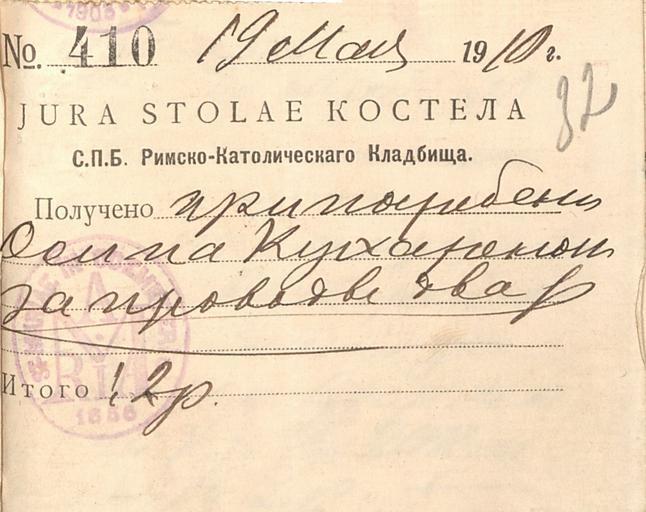 1905
No. 410 19 Мая 1910 г.
32
JURA STOLAE КОСТЕЛА
С.П.Б. Римско-Католическаго Кладбища.
Получено при погребени
Осипа Кухаренок
за проводы два р
Итого 2 р.
1856